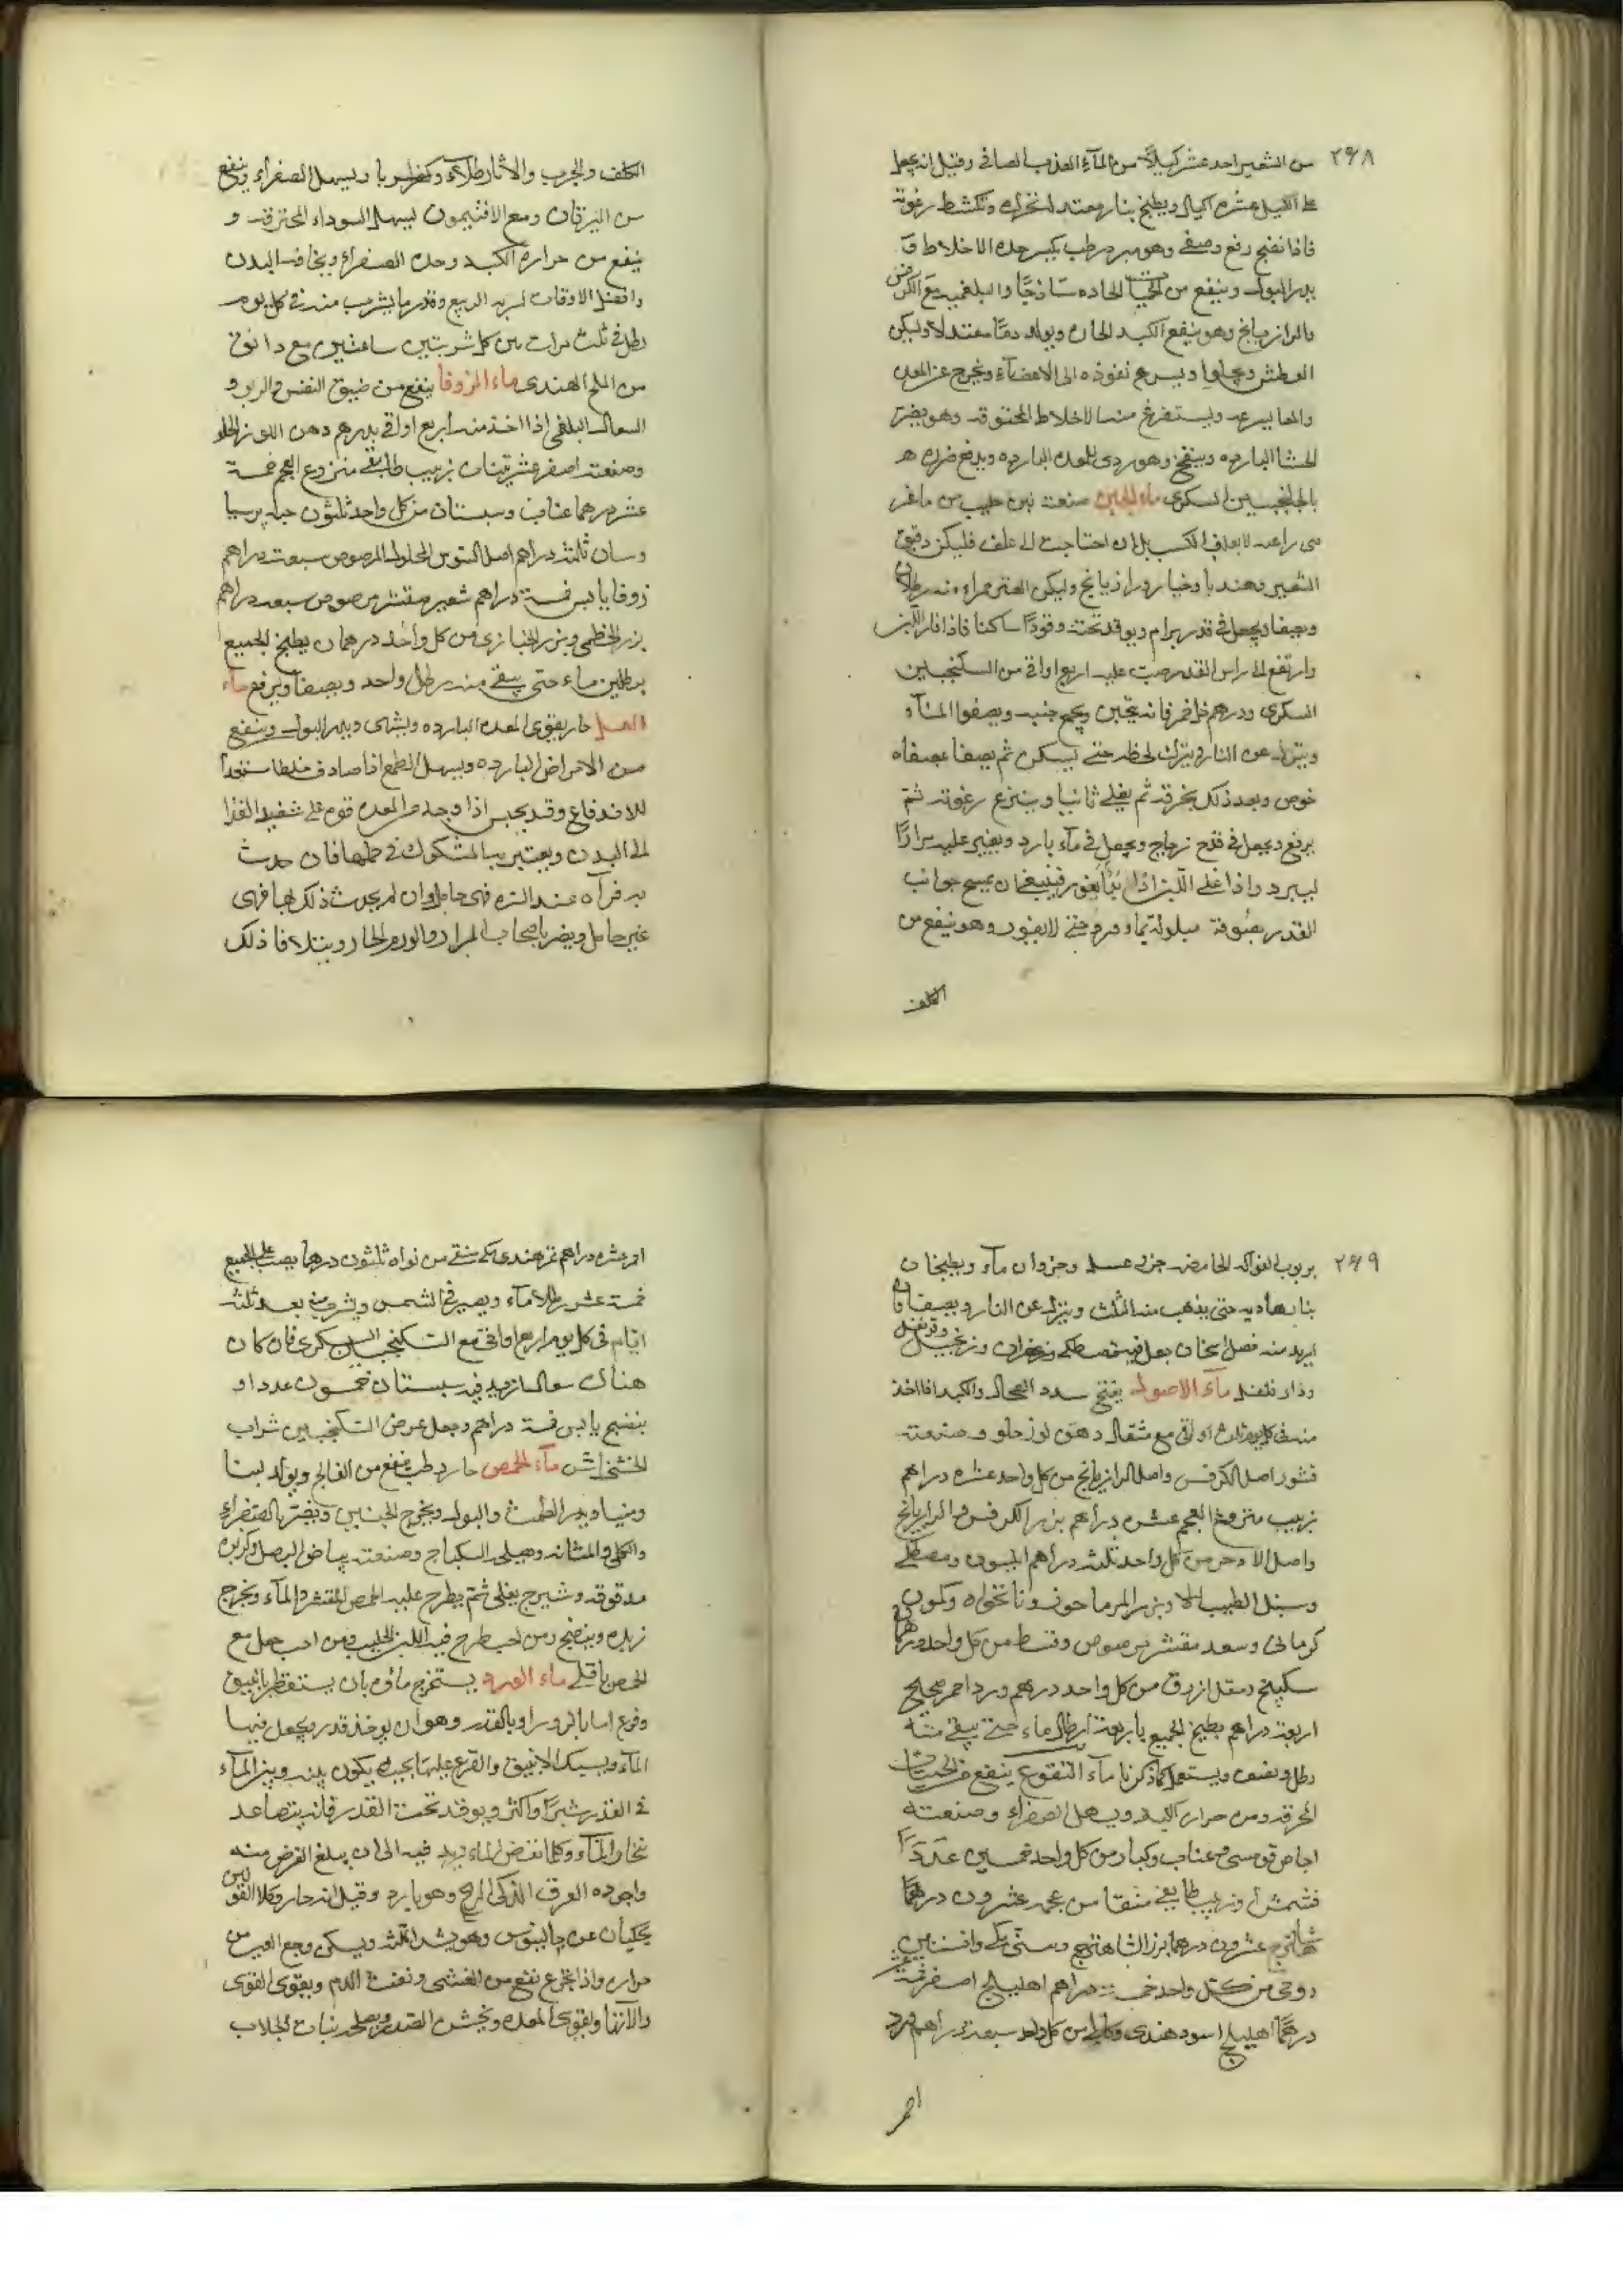 ٢٦٨
من الشعير احد عشر كيلاً من المآء العذب الصافى وقيل انه يجعل
على الكيل عشره اكيال ويطبخ بنار معتدله تحرك وتكشط رغوته
فاذا نضج رفع وصفى وهو مبرد مرطب يكسر حده الاخلاط و
يدر البول وينفع من الحميات الحاده ساذجًا والبلغميه مع الكرفس
والرازيانج وهو ينفع الكبد الحاره ويولد دمًا معتدلا ويسكن
العطش ويجلوا ويسرع نفوذه الى الاعضآء ويخرج عن المعده
والمعا بسرعه ويستفرغ منها الاخلاط المحترقه وهو يضر
الحشا البارده وينفخ وهو ردى للمعده البارده ويدفع ضرره
بالجلنجبين السكرى ماء الجبن صنعته لبن حليب من ماعز
راعيه لا يعلف الكسب بل ان احتاجت الى علف فليكن دقيق
الشعير وهندبا وخيار ورازيانج وليكن العنز حمراء منه رطلان
ويصفا ويجعل فى قدر برام ويوقد تحته وقودًا ساكنا فاذا فار اللبن
وارتفع الى راس القدر صب عليه اربع اواقى من السكنجبين
السكرى ودرهم خل خمر فانه يتجبن ويجمع جنبه ويصفوا المآء
وينزل عن النار ويترك لحظه حتى يسكن ثم يصفا بمصفاه
خوص وبعد ذلك بخرقه ثم يغلى ثانيا وينزع رغوته ثم
يرفع ويجعل فى قدح زجاج ويجعل فى مآء بارد ويغير عليه مرارًا
ليبرد واذا غلى اللبن يفور فينبغى ان يمسح جوانب
القدر بصوفة مبلولة بماء حتى لا يفور وهو ينفع من
الكلف
الكلف والجرب والاثار طلآء وشربا ويسهل الصفراء وينفع
من اليرقان ومع الافتيمون يسهل السوداء المحترقه و
ينفع من حراره الكبد وحده الصفراء ونحافه البدن
وافضل الاوقات لشربه الربيع وقدر ما يشرب منه فى كل يوم
رطل فى ثلث مرات بين كل شربتين ساعتين مع دانق
من الملح الهندى ماء الزوفا ينفع من ضيق النفس والربو و
السعال البلغمى اذا اخذ منه اربع اواقى بدرهم دهن اللوز الحلو
وصنعته اصفر عشر تينات زبيب طايفى منزوع العجم خمسة
عشر درهما عناب وسبستان من كل واحد ثلثون حبه پرسيا
وسان ثلثه دراهم اصل السوس المحلوك المرضوض سبعة دراهم
زوفا يابس خمسة دراهم شعير مقشر مرضوض سبعه دراهم
بزر الخطمى وبزر الخبازى من كل واحد درهمان يطبخ الجميع
برطلين ماء حتى يبقى منه رطل واحد ويصفا ويرفع ماء
العسل حار يقوى المعده البارده ويشهى ويدر البول وينفع
من الامراض البارده ويسهل الطبع اذا صادف خلطا مستعدا
للاندفاع وقد يحبس اذا وجد من المعده قوه على تنفيذ الغذا
الى البدن ويعتبر به المشكوك فى حملها فان حدث
به قراقر عند السره فهى حامل وان لم يحدث ذلك بها فهى
غير حامل ويضر باصحاب المرار والورم الحار ويتلافا ذلك
٢٦٩
بربوب الفواكه الحامضه جزء عسل وجزوان مآء ويطبخان
بنار هاديه حتى يذهب منه الثلث وينزل عن النار ويصفا فان
اريد منه فضل اسخان جعل فيه مصطكى وزعفران وزنجبيل وقرنفل
ودار فلفل مآء الاصول يفتح سدد الطحال والكبد اذا اخذ
منه فى كل يوم ثلث اواقى مع مثقال دهن لوز حلو وصنعته
قشور اصل الكرفس واصل الرازيانج من كل واحد عشره دراهم
زبيب منزوع العجم عشره دراهم بزر الكرفس والرازيانج
واصل الاذخر من كل واحد ثلثه دراهم انيسون ومصطكى
وسنبل الطيب وبزر المرماحوز ونانخواه وكمون
كرمانى وسعد مقشر مرضوض وقسط من كل واحد درهمان
سكبينج ومقل ازرق من كل واحد درهم ورد احمر صحيح
اربعة دراهم يطبخ الجميع باربعة ارطال ماء حتى يبقى منه
رطل ونصف ويستعمل كما ذكرنا مآء النقوع ينفع من الحميات
المحرقه ومن حراره الكبد ويسهل الصفراء وصنعته
اجاص قومسى وعناب وكبار من كل واحد خمسين عددًا
قشمش وزبيب طايفى منقا من عجمه عشرون درهمًا
شاهترج عشرون درهما بزر الشاهترج وسنى مكى وافسنتين
رومى من كل واحد خمسه دراهم اهليلج اصفر خمسة عشر
درهمًا اهليلج اسود هندى وكابلى من كل واحد سبعة دراهم ورد
احمر
احمر عشره دراهم تمر هندى مكى منقى من نواه ثلثون درهما يصب على الجميع
خمسة عشر رطلا مآء ويصير فى الشمس ويشرب منه بعد ثلثه
ايام فى كل يوم اربع اواقى مع السكنجبين السكرى فان كان
هناك سعال ازيد فيه سبستان خمسون عددا و
بنفسج يابس خمسة دراهم وجعل عوض السكنجبين شراب
الخشخاش مآء الحمص حار رطب ينفع من الفالج ويولد لبنا
ومنيا ويدر الطمث والبول ويخرج الجنين ويضر بالصفراء
والكلى والمثانه وصنعته بياض البصل وكزبره
مدقوقه وشيرج يغلى ثم يطرح عليه الحمص المقشر والمآء ويخرج
زبده وينضج ومن احب طرح فيه اللبن الحليب ومن احب جعل مع
الحمص باقلى ماء الورد يستخرج ماؤه بان يستقطر بانبيق
وقرع اما بالزور او بالقدر وهو ان يوخذ قدر ويجعل فيها
المآء ويسبك الانبيق والقرع عليها بحيث يكون بينه وبين المآء
فى القدر شبرًا واكثر ويوقد تحت القدر فانه يتصاعد
بخار المآء وكلما نقص الماء زيد فيه الى ان يبلغ الغرض منه
واجوده العرق الذكى الريح وهو بارد وقيل انه حار وكلا القولين
يحكيان عن جالينوس وهو يشد اللثه ويسكن وجع العين من
حراره واذا تجرع نفع من الغشى ونفث الدم ويقوى القوى
والالات ويقوى المعده ويخشن الصدر ويصلحه نبات الجلاب